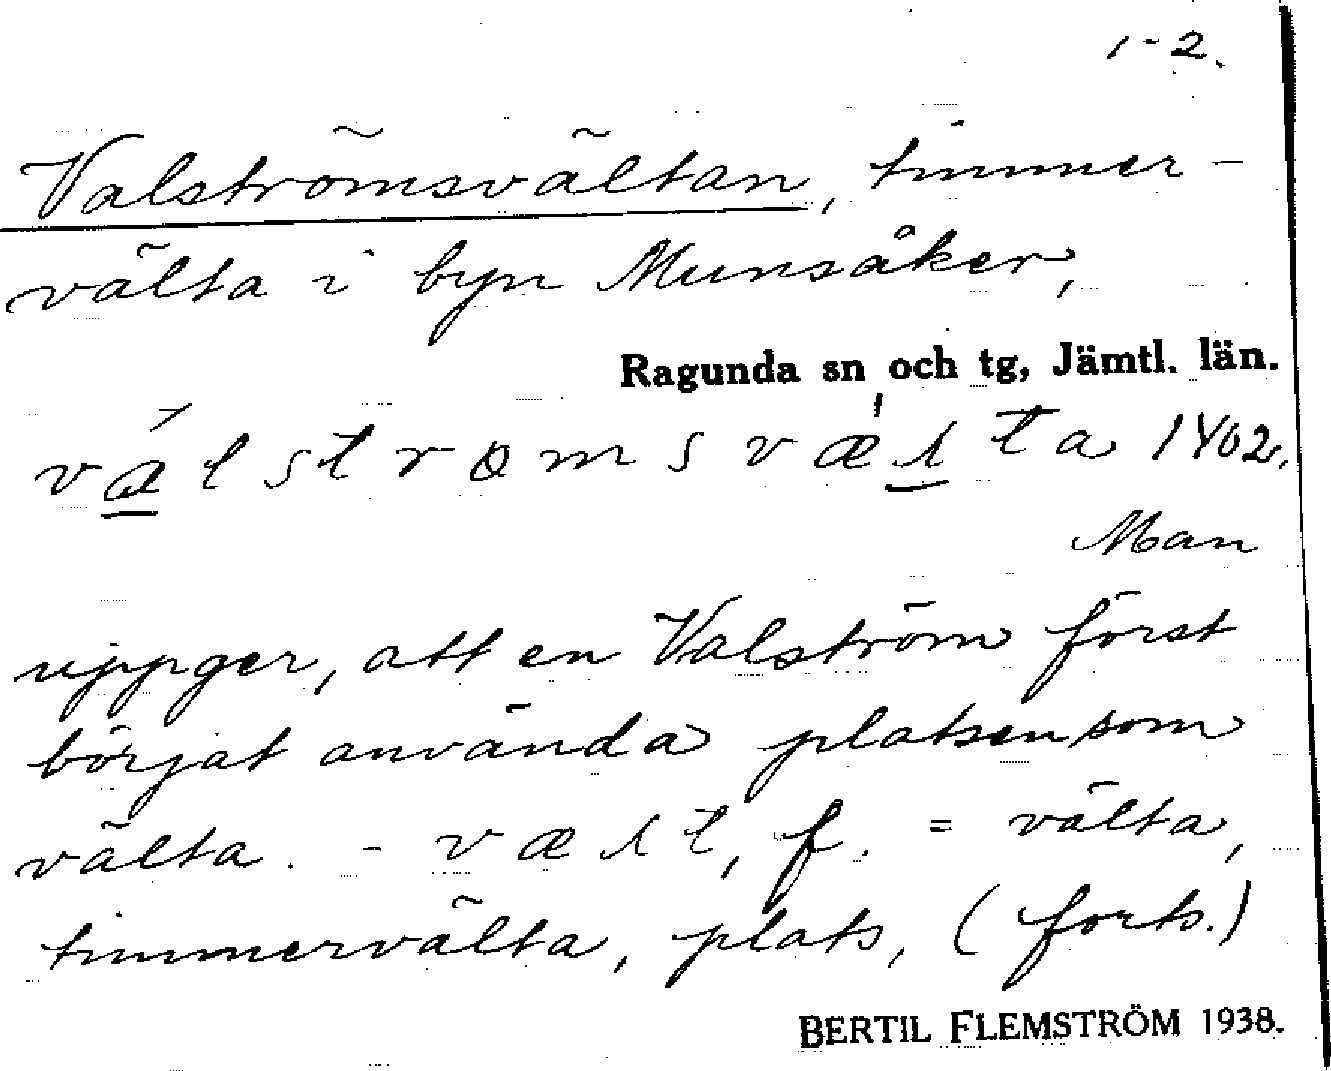 1-2.
Valströmsvältan, timmer-
välta i byn Munsåker,
Ragunda sn och tg, Jämtl. län.
valstrømsvæɫta 1402.
Man
uppger, att en Valström först
börjat använda platsen som
välta. - væɫt, f. = välta,
timmervälta, plats, (forts.)
BERTIL FLEMSTRÖM 1938.